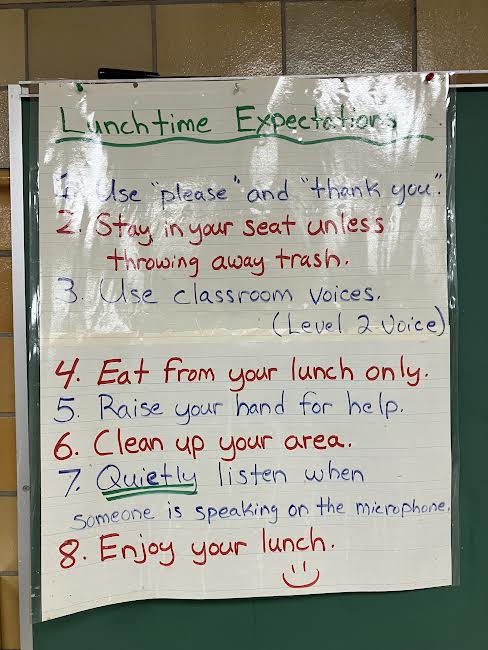 Lunchtime Expectations
1. Use "please" and "thank you".
2. Stay in your seat unless
throwing away trash.
3. Use classroom voices.
(Level 2 voice)
4. Eat from your lunch only.
5. Raise your hand for help.
6. Clean up your area.
7. Quietly listen when
someone is speaking on the microphone.
8. Enjoy your lunch.